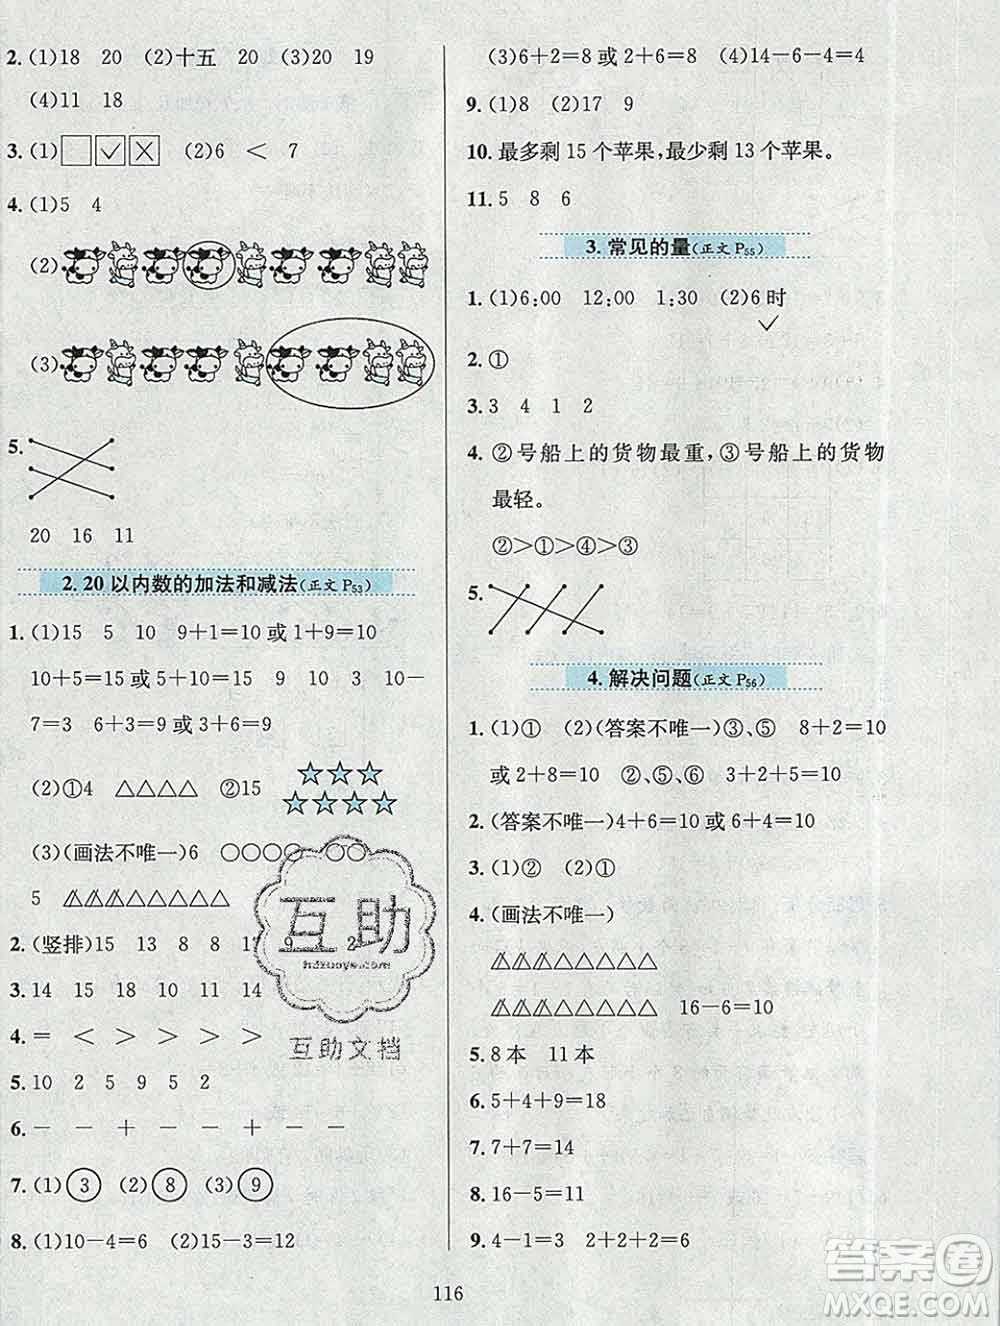 2. (1)18 20 (2)十五 20 (3)20 19
(4)11 18
3. (1)□ ✓ × (2)6 < 7
4. (1)5 4
(2)
(3)
5.
20 16 11
2. 20以内数的加法和减法(正文 P53)
1. (1)15 5 10 9+1=10 或 1+9=10
10+5=15 或 5+10=15 10 3 10-
7=3 6+3=9 或 3+6=9
(2)①4 △△△△ ②15 ☆☆☆
☆☆☆☆
(3)(画法不唯一)6 ○○○○ ○○
5
2. (竖排)15 13 8 8 9 2
3. 14 15 18 10 11 14
4. = < > > > >
5. 10 2 5 9 5 2
6. - - + - + - -
7. (1)③ (2)⑧ (3)⑨
8. (1)10-4=6 (2)15-3=12
(3)6+2=8 或 2+6=8 (4)14-6-4=4
9. (1)8 (2)17 9
10. 最多剩 15 个苹果,最少剩 13 个苹果。
11. 5 8 6
3. 常见的量(正文 P55)
1. (1)6:00 12:00 1:30 (2)6 时
✓
2. ①
3. 3 4 1 2
4. ②号船上的货物最重,③号船上的货物
最轻。
②>①>④>③
5.
4. 解决问题(正文 P56)
1. (1)① (2)(答案不唯一)③、⑤ 8+2=10
或 2+8=10 ②、⑤、⑥ 3+2+5=10
2. (答案不唯一)4+6=10 或 6+4=10
3. (1)② (2)①
4. (画法不唯一)
16-6=10
5. 8 本 11 本
6. 5+4+9=18
7. 7+7=14
8. 16-5=11
9. 4-1=3 2+2+2=6
116
互助
hdzuoye.com
互助文档
答案圈
MXQE.COM